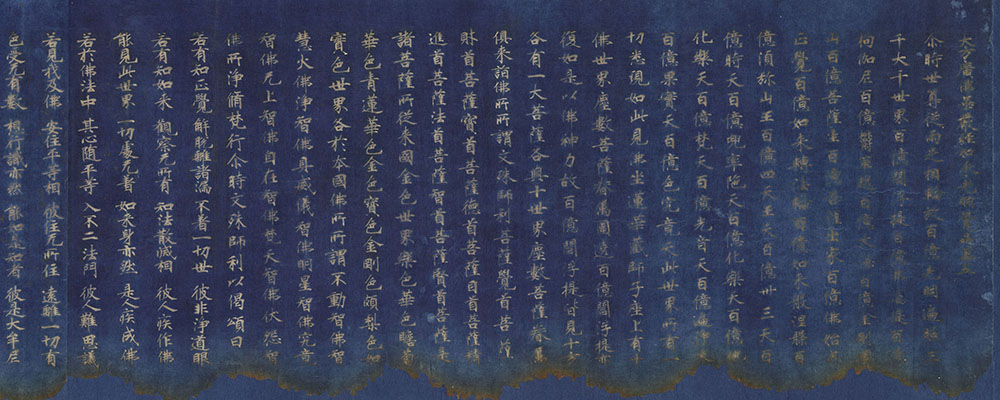 大方廣佛華嚴經如來光明覺品第五
尒時世尊從兩足相輪放百億光明遍照三
千大千世界百億閻浮提百億弗婆提百億
拘伽尼百億欝單越百億大海百億金剛圍
山百億菩薩生百億菩薩出家百億佛始成
正覺百億如來轉法輪百億如來般涅槃百
億須弥山王百億四天王天百億卅三天百
億時天百億兜率陁天百億化樂天百億他
化樂天百億梵天百億光音天百億遍淨天
百億果實天百億色究竟天此世界所有一
切悉現如此見佛坐蓮華藏師子坐上有十
佛世界塵數菩薩眷屬圍遶百億閻浮提亦
復如是以佛神力故百億閻浮提皆見十方
各有一大菩薩各與十世界塵數菩薩眷屬
俱來詣佛所所謂文殊師利菩薩覺首菩薩
財首菩薩寶首菩薩德首菩薩目首菩薩精
進首菩薩法首菩薩智首菩薩賢首菩薩是
諸菩薩所從來國金色世界樂色華色瞻蔔
華色青蓮華色金色寶色金剛色頗梨色如
寶色世界各於本國佛所所謂不動智佛智
慧火佛淨智佛具威儀智佛明星智佛究竟
智佛无上智佛自在智佛梵天智佛伏怨智
佛所淨脩梵行尒時文殊師利以偈頌曰
若有知正覺 解脫離諸漏 不著一切世 彼非淨道眼
若有知如來 觀察无所有 知法散滅相 彼人疾作佛
能見此世界 一切處无著 如來身亦然 是人疾成佛
若於佛法中 其心隨平等 入不二法門 彼人難思議
若見我及佛 安住平等相 彼住无所住 遠離一切有
色受无有數 想行識亦然 能如是知者 彼是大牟尼